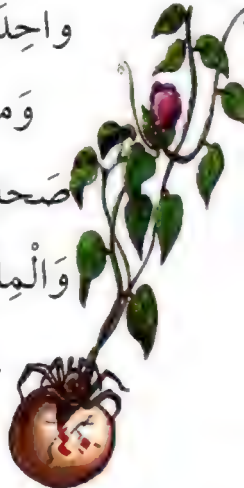 واحِدَ
وَم
صَح
وَالْمِل